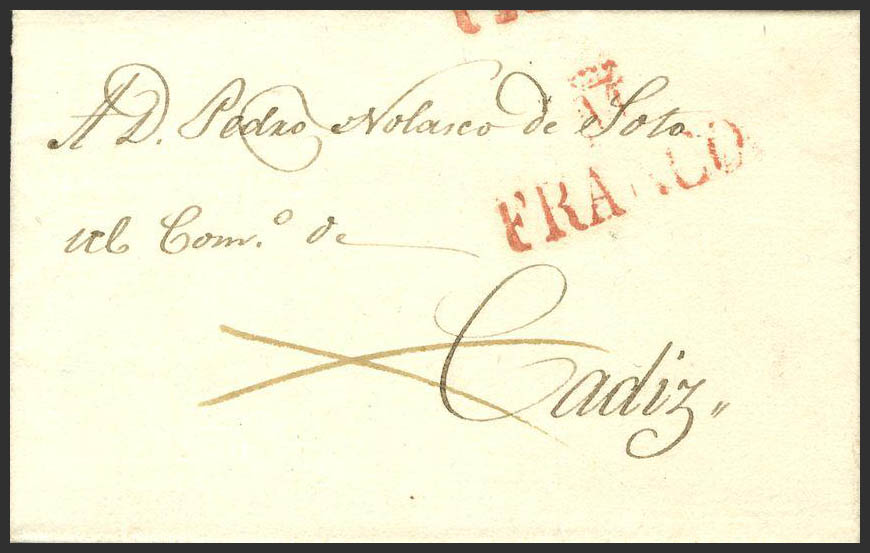 A D. Pedro Nolasco de Soto
M
FRANCO
del Com.º de
Cadiz